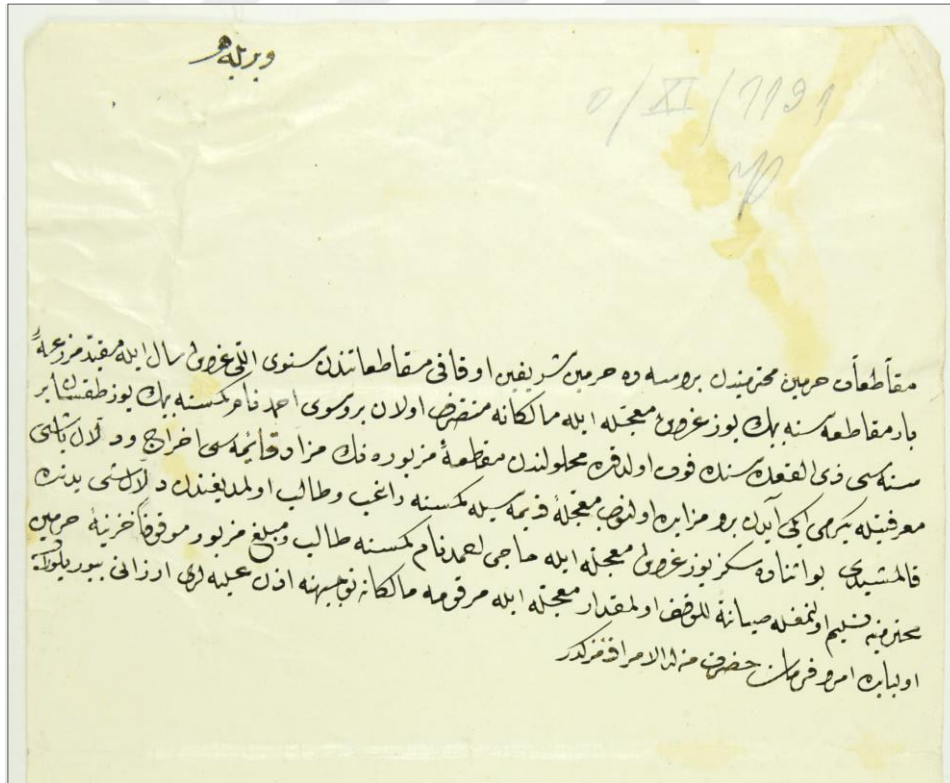 ويريله
0/XI/1191
مقاطعات حرمين محترميندن بروسه ده حرمين شريفين اوقافى مقاطعاتندن سنوى اللى غروش مال ايله مقيد مزرعه
بار مقاطعه سنه بيك يوز غروش معجله ايله مالكانه متصرف اولان بروسوى احمد نام كمسنه بيك يوز طقسان بر
سنه سى ذى القعده سنده فوت اولدقده محلولندن مقاطعۀ مزبوره نك مزاد قائمه سى اخراج ودلال باشى
معرفتيله يكرمى ايكى آيدن برو مزايده اولنوب معجلۀ قديمه سيله كمسنه راغب وطالب اولمديغندن دلال باشى يدنده
قالمشيدى بو اثناده سكز يوز غروش معجله ايله حاجى احمد نام كمسنه طالب ومبلغ مزبور موقوفا خزينۀ حرمين
محترمينه تسليم اولنمغله صيانة للوقف اولمقدار معجله ايله مرقومه مالكانه توجيهنه اذن عليه لرى ارزانى بيوريلورسه
اولبابده امر وفرمان حضرت من له الامر افندمكدر